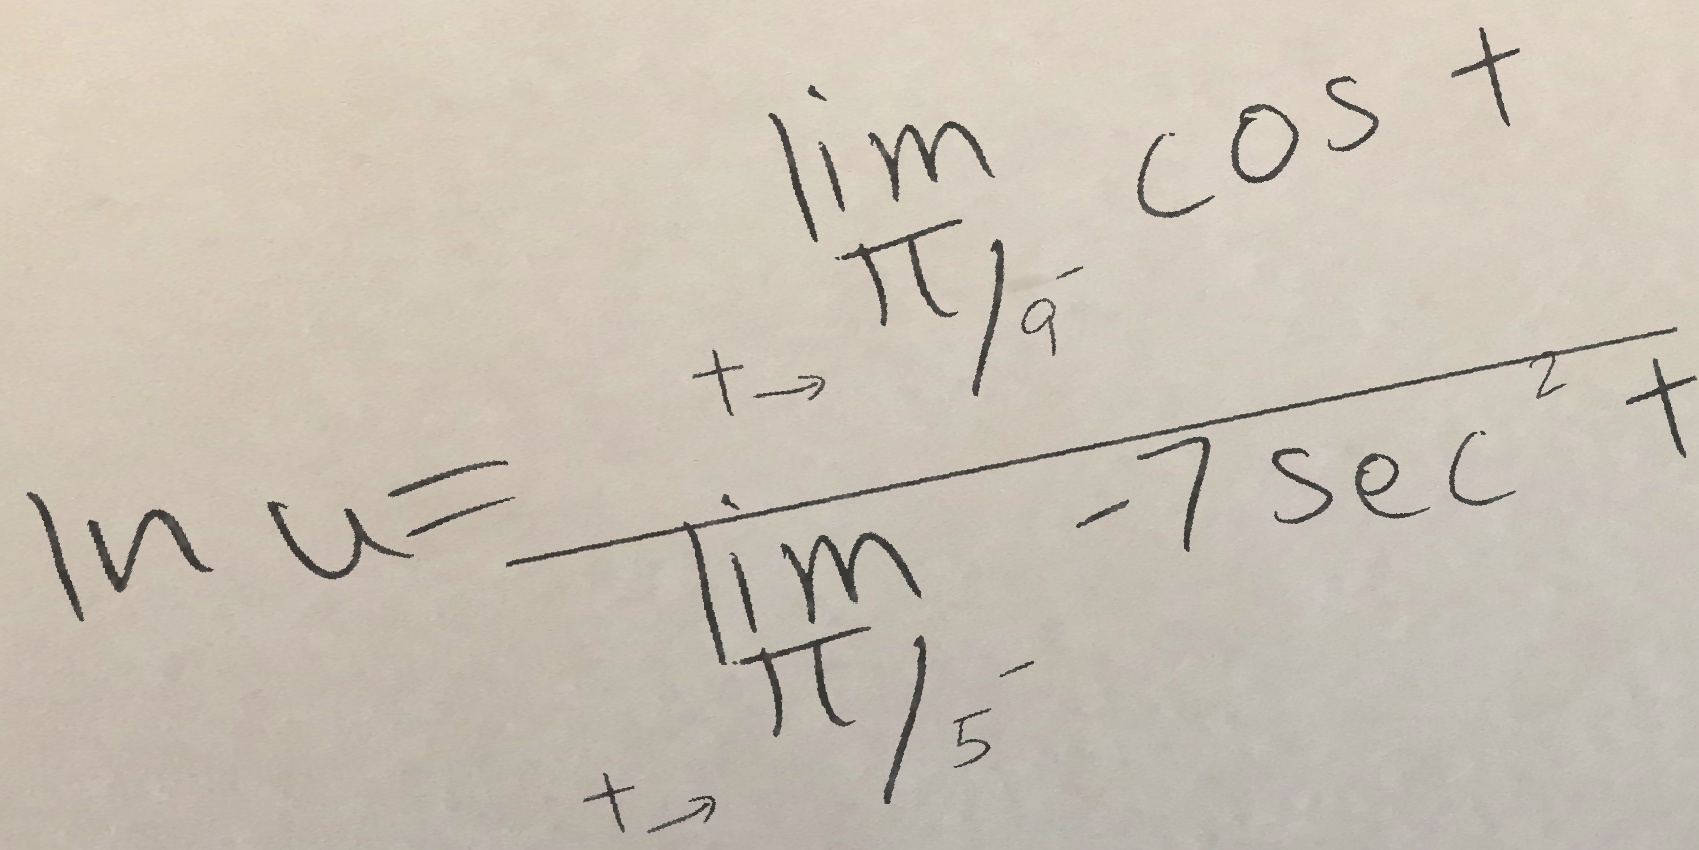 ln u = \frac{\lim_{t \to \pi/9^-} \cos t}{\lim_{t \to \pi/5^-} -7 \sec^2 t}